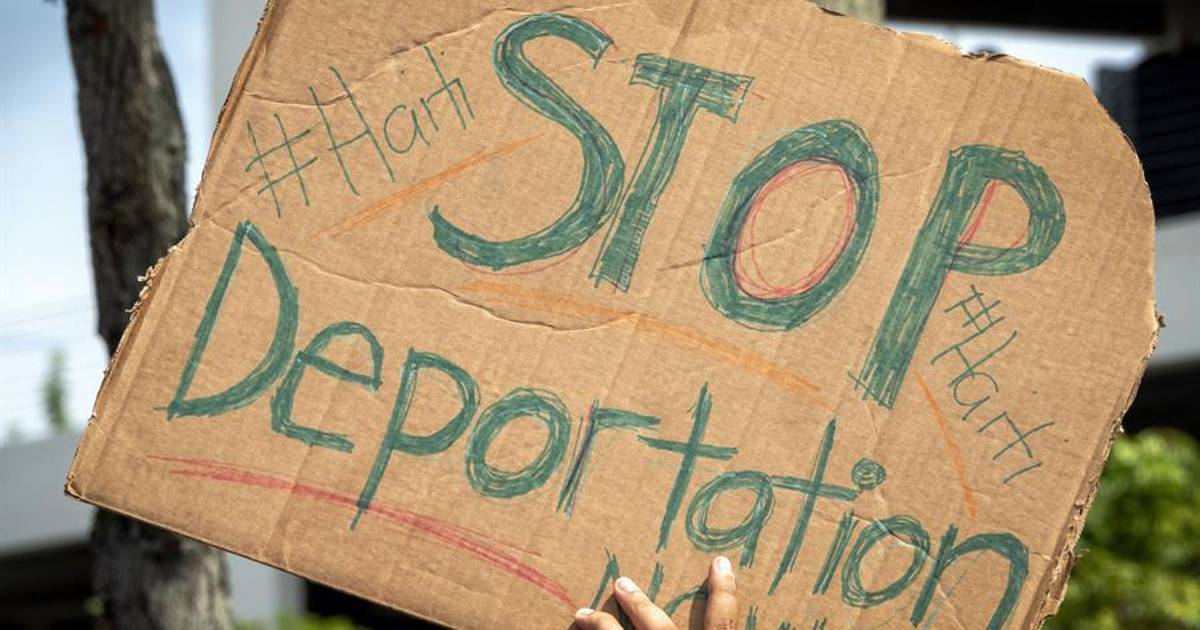 #Harti
STOP
#Harti
Deportation